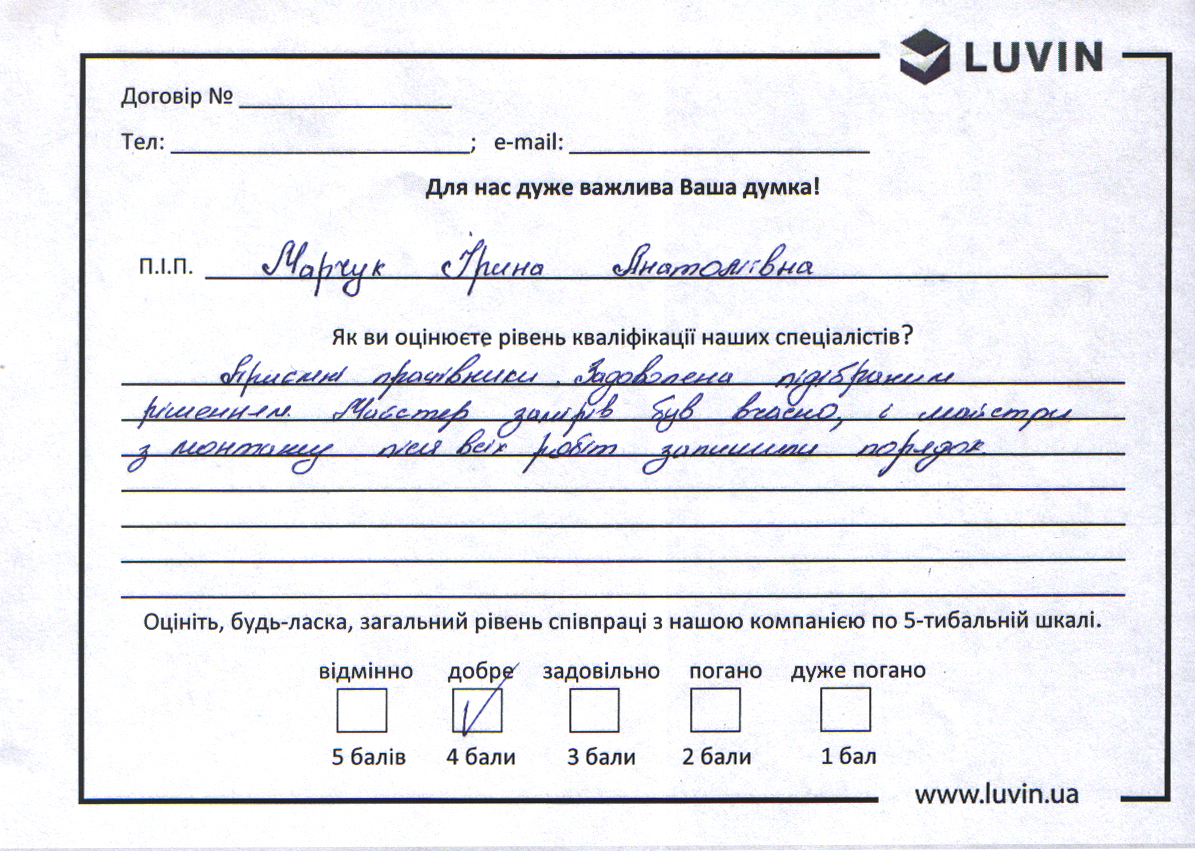 LUVIN
Договір №
Тел: ; e-mail:
Для нас дуже важлива Ваша думка!
П.І.П. Марчук Ірина Анатоліївна
Як ви оцінюєте рівень кваліфікації наших спеціалістів?
Приємні працівники. Задоволена підібраним
рішенням. Маєстер замірів був вчасно, і майстри
з монтажу після всіх робіт залишили порядок.
Оцініть, будь-ласка, загальний рівень співпраці з нашою компанією по 5-тибальній шкалі.
відмінно добре задовільно погано дуже погано
5 балів 4 бали 3 бали 2 бали 1 бал
www.luvin.ua